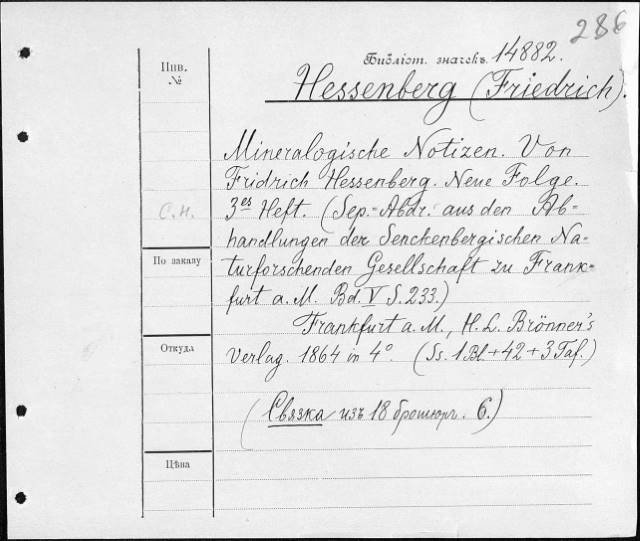 286
Инв. №
Библіот. значекъ. 14882.
Hessenberg (Friedrich).
Mineralogische Notizen. Von
Fridrich Hessenberg. Neue Folge.
С.Н.
3es Heft. (Sep.-Abdr. aus den Ab-
handlungen der Senckenbergischen Na-
По заказу
turforschenden Gesellschaft zu Frank-
furt a. M. Bd. V S. 233.)
Frankfurt a. M., H. L. Brönner's
Откуда
Verlag. 1864 in 4°. (Ss. 1 Bl. + 42 + 3 Taf.)
(Связка изъ 18 брошюръ. 6.)
Цѣна